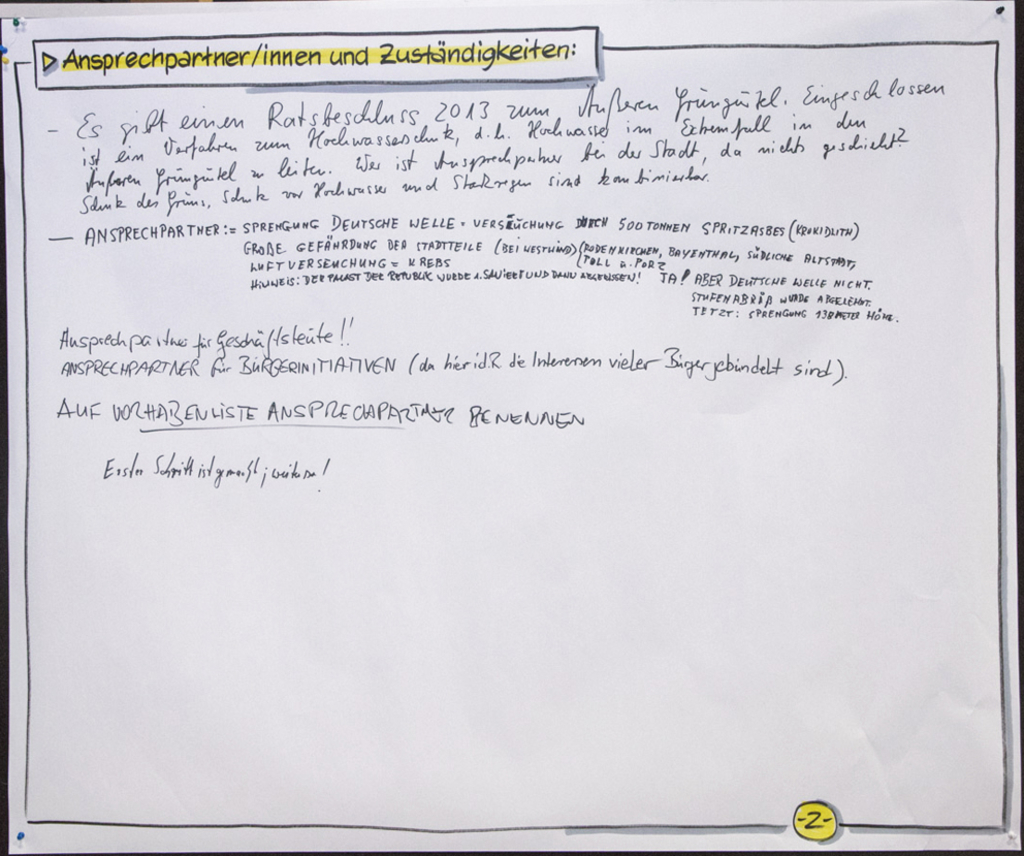 Ansprechpartner/innen und Zuständigkeiten:
- Es gibt einen Ratsbeschluss 2013 zum Äußeren Grüngürtel. Eingeschlossen
ist ein Verfahren zum Hochwasserschutz, d.h. Hochwasser im Extremfall in den
Äußeren Grüngürtel zu leiten. Wer ist Ansprechpartner bei der Stadt, da nichts geschieht?
Schutz des Grüns, Schutz vor Hochwasser und Starkregen sind kombinierbar.
- ANSPRECHPARTNER:= SPRENGUNG DEUTSCHE WELLE = VERSEUCHUNG DURCH 500 TONNEN SPRITZASBES (KROKIDLITH)
GROßE GEFÄHRDUNG DER STADTTEILE (BEI WESTWIND) (RODENKIRCHEN, BAYENTHAL, SÜDLICHE ALTSTADT,
LUFTVERSEUCHUNG = KREBS (POLL u. PORZ
HINWEIS: DER PALAST DER REPUBLIK WURDE 1. SANIERT UND DANN ABGERISSEN! JA! ABER DEUTSCHE WELLE NICHT.
STUFENABRIß WURDE ABGELEHNT.
JETZT: SPRENGUNG 138 METER HÖHE.
Ansprechpartner für Geschäftsleute!!
ANSPRECHPARTNER für BÜRGERINITIATIVEN (da hier i.d.R die Interessen vieler Bürger gebündelt sind).
AUF VORHABENLISTE ANSPRECHPARTNER BENENNEN
Erster Schritt ist gemacht; weiter so!
-2-